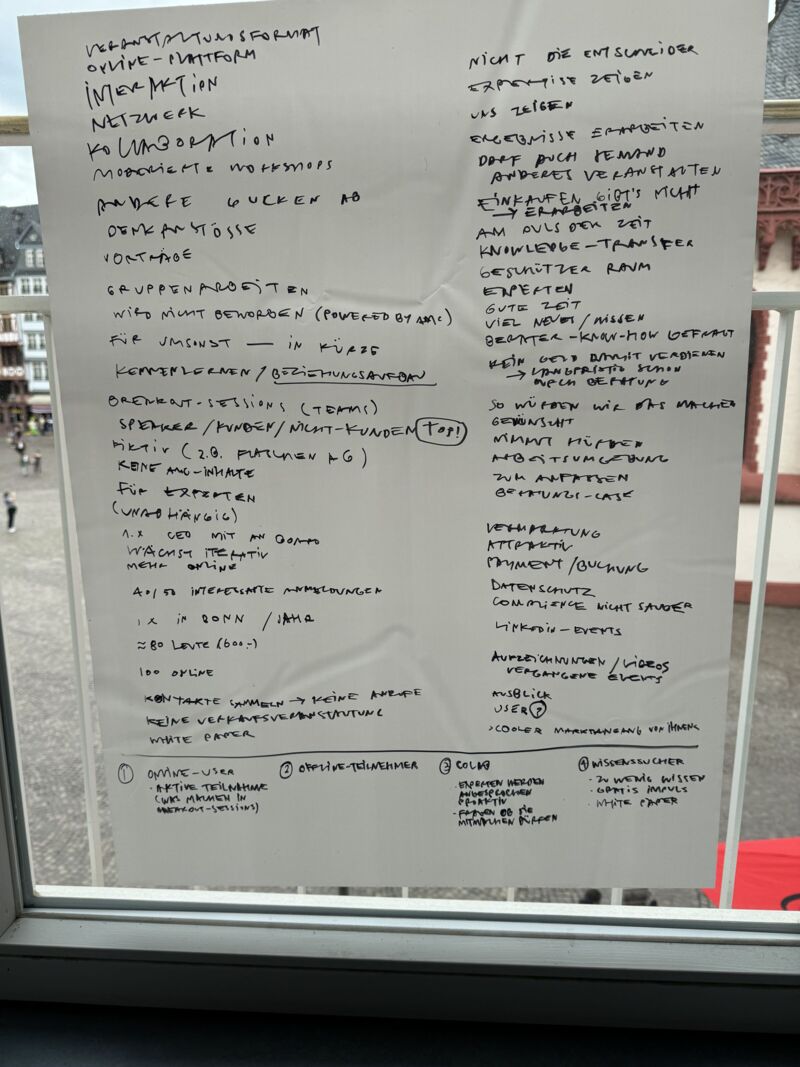 VERANSTALTUNGSFORMAT
ONLINE-PLATTFORM
INTERAKTION
NETZWERK
KOLLABORATION
MODERIERTE WORKSHOPS
ANDERE GUCKEN AB
DENKANSTÖSSE
VORTRÄGE
GRUPPENARBEITEN
WIRD NICHT BEWORBEN (POWERED BY AMC)
FÜR UMSONST — IN KÜRZE
KENNENLERNEN / BEZIEHUNGSAUFBAU
BREAKOUT-SESSIONS (TEAMS)
SPEAKER / KUNDEN / NICHT-KUNDEN TOP!
FIKTIV (Z.B. FLASCHEN AG)
KEINE AMC-INHALTE
FÜR EXPERTEN
(UNABHÄNGIG)
1.X CEO MIT AN BORD
WÄCHST ITERATIV
MEHR ONLINE
40/50 INTERESSANTE ANMELDUNGEN
1 X IN BONN / JAHR
≈ 80 LEUTE (600.-)
100 ONLINE
KONTAKTE SAMMELN → KEINE ANRUFE
KEINE VERKAUFSVERANSTALTUNG
WHITE PAPER
NICHT DIE ENTSCHEIDER
EXPERTISE ZEIGEN
UNS ZEIGEN
ERGEBNISSE ERARBEITEN
DARF AUCH JEMAND
ANDERES VERANSTALTEN
EINKAUFEN GIBT'S NICHT
→ ERARBEITEN
AM PULS DER ZEIT
KNOWLEDGE-TRANSFER
GESCHÜTZER RAUM
EXPERTEN
GUTE ZEIT
VIEL NEUES / WISSEN
BERATER-KNOW-HOW GEFRAGT
KEIN GELD DAMIT VERDIENEN
→ LANGFRISTIG SCHON
DURCH BERATUNG
SO WÜRDEN WIR DAS MACHEN
GEWÜNSCHT
NIMMT HÜRDEN
ARBEITSUMGEBUNG
ZUM ANFASSEN
BERATUNGS-CASE
VERMARKTUNG
ATTRAKTIV
PAYMENT/BUCHUNG
DATENSCHUTZ
COMPLIENCE NICHT SAUBER
LINKEDIN-EVENTS
AUFZEICHNUNGEN / VIDEOS
VERGANGENE EVENTS
AUSBLICK
USER ?
>COOLER MARKTZUGANG VON IHNEN
1 ONLINE-USER
· AKTIVE TEILNAHME
(WAS MACHEN IN
BREAKOUT-SESSIONS)
2 OFFLINE-TEILNEHMER
3 COLAB
· EXPERTEN WERDEN
ANGESPROCHEN
PROAKTIV
· FRAGEN OB SIE
MITMACHEN DÜRFEN
4 WISSENSSUCHER
· ZU WENIG WISSEN
· GRATIS IMPULS
· WHITE PAPER